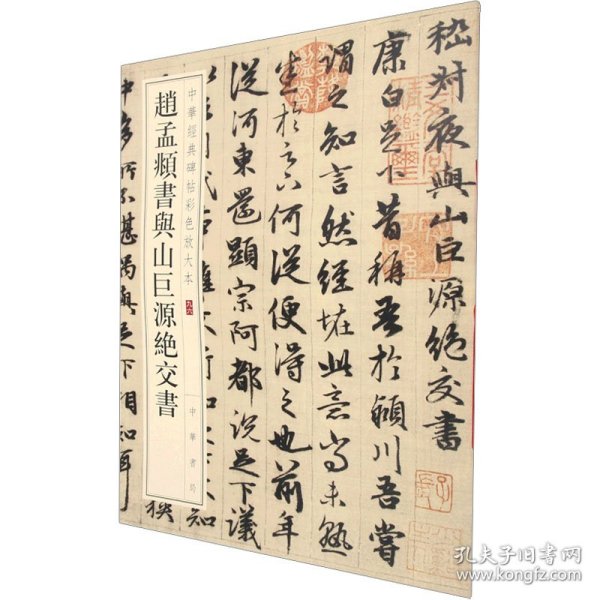 嵇叔夜與山巨源絕交書
康白足下昔稱吾於潁川吾嘗
謂之知言然經怪此意尚未熟
悉於足下何從便得之也前年
從河東還顯宗阿都說足下議
中華經典碑帖彩色放大本 九六
趙孟頫書與山巨源絕交書
中華書局
中多所不堪偶與足下相知耳
孔夫子旧书网
www.kongfz.com